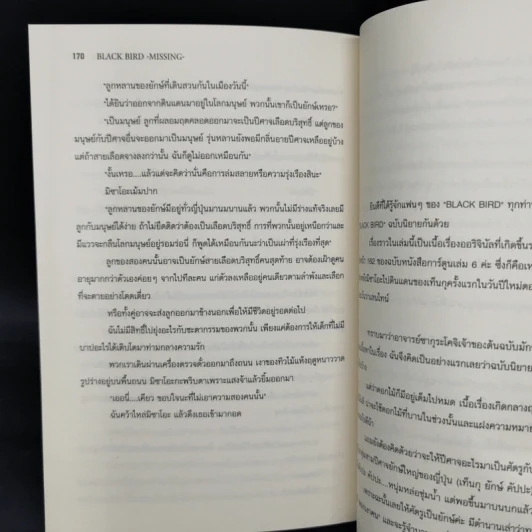 170 BLACK BIRD -MISSING-
"ลูกหลานของยักษ์ที่เดินสวนกันในเมืองวันนี้"
"ได้ยินว่าออกจากดินแดนมาอยู่ในโลกมนุษย์ พวกนั้นเขาก็เป็นยักษ์เหรอ?"
"เป็นมนุษย์ ลูกที่ผสมฤดูคลอดออกมาจะเป็นปีศาจเลือดบริสุทธิ์ แต่ลูกของ
มนุษย์กับปีศาจอื่นจะออกมาเป็นมนุษย์ รุ่นหลานยังพอมีกลิ่นอายปีศาจเหลืออยู่บ้าง
แต่ถ้าสายเลือดจางลงกว่านั้น ฉันก็ดูไม่ออกเหมือนกัน"
"งั้นเหรอ....แล้วแต่จะคิดว่านั่นคือการล่มสลายหรือความรุ่งเรืองสินะ"
มิซาโอะเม้มปาก
"ลูกหลานของยักษ์มีอยู่ทั่วญี่ปุ่นมานมนานแล้ว พวกนั้นไม่มีร่างแท้จริงเลยมี
ลูกกับมนุษย์ได้ง่าย ถ้าไม่ยึดติดว่าต้องเป็นเลือดบริสุทธิ์ การที่พวกนั้นอยู่เหนือกว่าและ
มีแววจะกลืนโลกมนุษย์อยู่รอมร่อนี่ ก็พูดได้เหมือนกันนะว่าเป็นเผ่าที่รุ่งเรืองที่สุด"
ลูกของสองคนนั้นอาจเป็นยักษ์สายเลือดบริสุทธิ์คนสุดท้าย อาจต้องเฝ้าดูคน
อายุมากกว่าตัวเองค่อยๆ จากไปทีละคน แก่ตัวลงเหลืออยู่คนเดียวตามลำพังและเลือก
ที่จะตายอย่างโดดเดี่ยว
หรือทั้งคู่อาจจะส่งลูกออกมาข้างนอกเพื่อให้มีชีวิตอยู่รอดต่อไป
ฉันไม่มีสิทธิ์ไปยุ่งอะไรกับชะตากรรมของพวกนั้น เพียงแค่ต้องการให้เด็กที่ไม่มี
บาปอะไรได้เติบโตมาท่ามกลางความรัก
พวกเราเดินผ่านเครื่องตรวจตั๋วออกมาถึงถนน เงาของทิวไม้แห้งฤดูหนาววาด
รูปร่างอยู่บนพื้นถนน มิซาโอะกะพริบตาเพราะแสงจ้าแล้วยิ้มออกมา
"เออนี่....เคียว ขอบใจนะที่ไม่เอาความสองคนนั้น"
ฉันคว้าไหล่มิซาโอะ แล้วดึงเธอเข้ามากอด
ยินดีที่ได้รู้จักแฟนๆ ของ "BLACK BIRD" ทุกท่าน
BLACK BIRD" ฉบับนิยายกันด้วย
เรื่องราวในเล่มนี้เป็นเนื้อเรื่องออริจินัลที่เกิดขึ้น
162 ของฉบับหนังสือการ์ตูนเล่ม 6 ค่ะ ซึ่งก็คือ
มิซาโอะไปดินแดนของเท็นกุครั้งแรกในวันปีใหม่
ทราบมาว่าอาจารย์ซากุระโคจิเจ้าของต้นฉบับ
ในเรื่อง ฉันจึงคิดเป็นอย่างแรกเลยว่าฉบับนิยาย
แต่ว่าดอกไม้ก็มีอยู่เต็มไปหมด เนื้อเรื่องเกิดกลาง
จะใช้ดอกไม้ที่บานในช่วงนั้นและแฝงความหมาย
ยังต้องคิดด้วยว่าจะให้ปีศาจอะไรมาเป็นคัตรูกับ
ปีศาจยักษ์ใหญ่ของญี่ปุ่น (เท็นกุ ยักษ์ คัปปะ)
คัปปะ....หนุ่มหล่อชุ่มน้ำ แต่พอขึ้นมาบนบกแล้ว
เพราะฉะนั้นเลยให้คัตรูเป็นยักษ์ค่ะ มีตำนานเล่าว่า